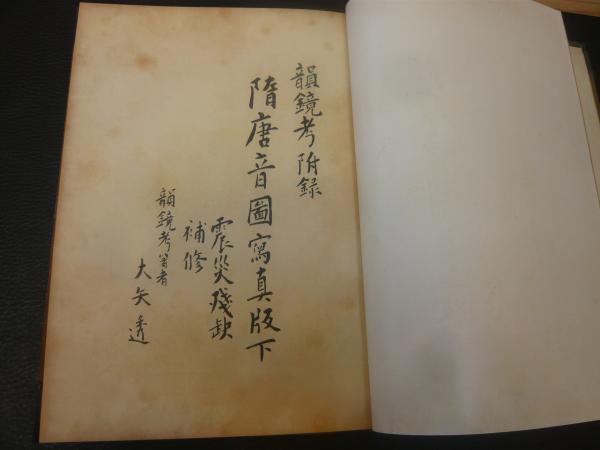 韻鏡考附録
隋唐音圖寫真版下
震災殘缺
補修
韻鏡考著者
大矢透